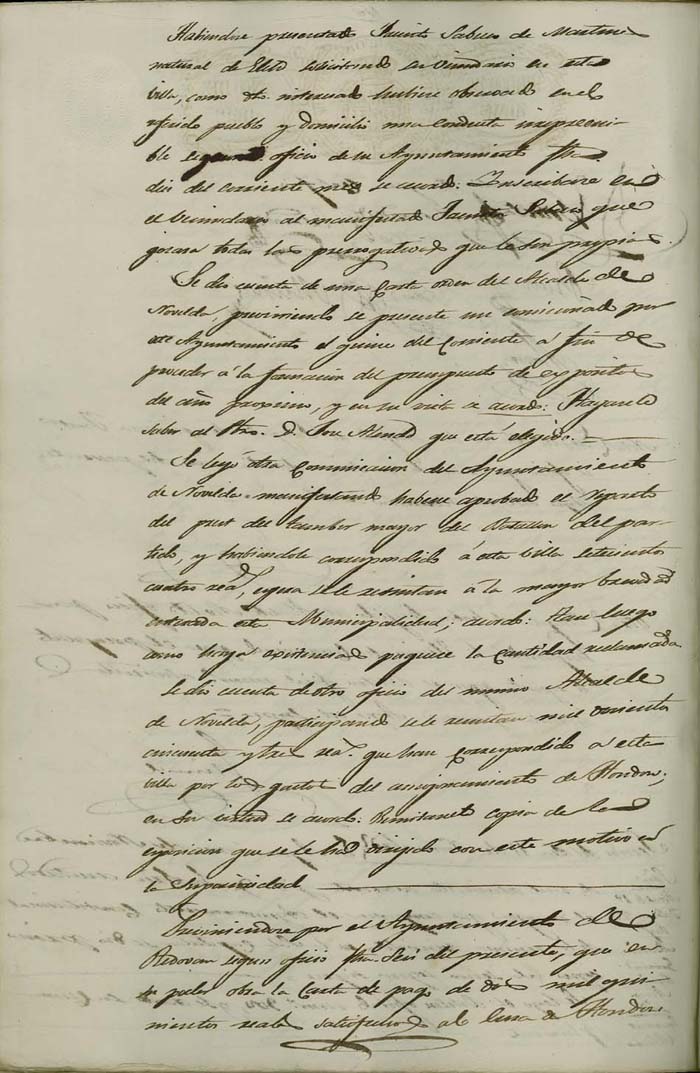 Habiendose presentado Jacinto Sabuco de Martinez
natural de Elda solicitando su vecindario en esta
villa, como dho. interesado hubiese observado en el
referido pueblo y domicilio una conducta irreprensi-
ble segun oficio de su Ayuntamiento fha.
diez del corriente mes se acordo: Inscribase en
el vecindario al manifestado Jacinto Sabuco y que
gozara todas las prerrogativas que le son propias.
Se dio cuenta de una Carta orden del Alcalde de
Novelda, previniendo se presente un comisionado por
este Ayuntamiento el quince del Corriente a fin de
proceder á la formacion del presupuesto de expositos
del año proximo, y en su vista se acordo: Hagasele
saber al D. Jose que está elegido.
Se leyó otra Comunicacion del Ayuntamiento
de Novelda manifestando haberse aprobado el reparto
del prest del tambor mayor del Batallon del par-
tido, y habiendole correspondido á esta villa setecientos
cuatro rea.s, y que se le remitan á la mayor brevedad
enterada esta Municipalidad; acordo: Tan luego
como haya existencias paguese la Cantidad reclamada
Se dio cuenta de otro oficio del mismo Alcalde
de Novelda, participando se le remitan mil
cincuenta y tres rea.s que han correspondido a esta
villa por los gastos del de Hondon;
en su virtud se acordo: Remitasele copia de la
esposicion que se le ha dirijido con este motivo a
la Superioridad
Previniendose por el Ayuntamiento de
Redovan segun oficio fha. Seis del presente, que en
su poder obra la Carta de pago de dos mil qui-
nientos reales satisfechos al Cura de Hondon